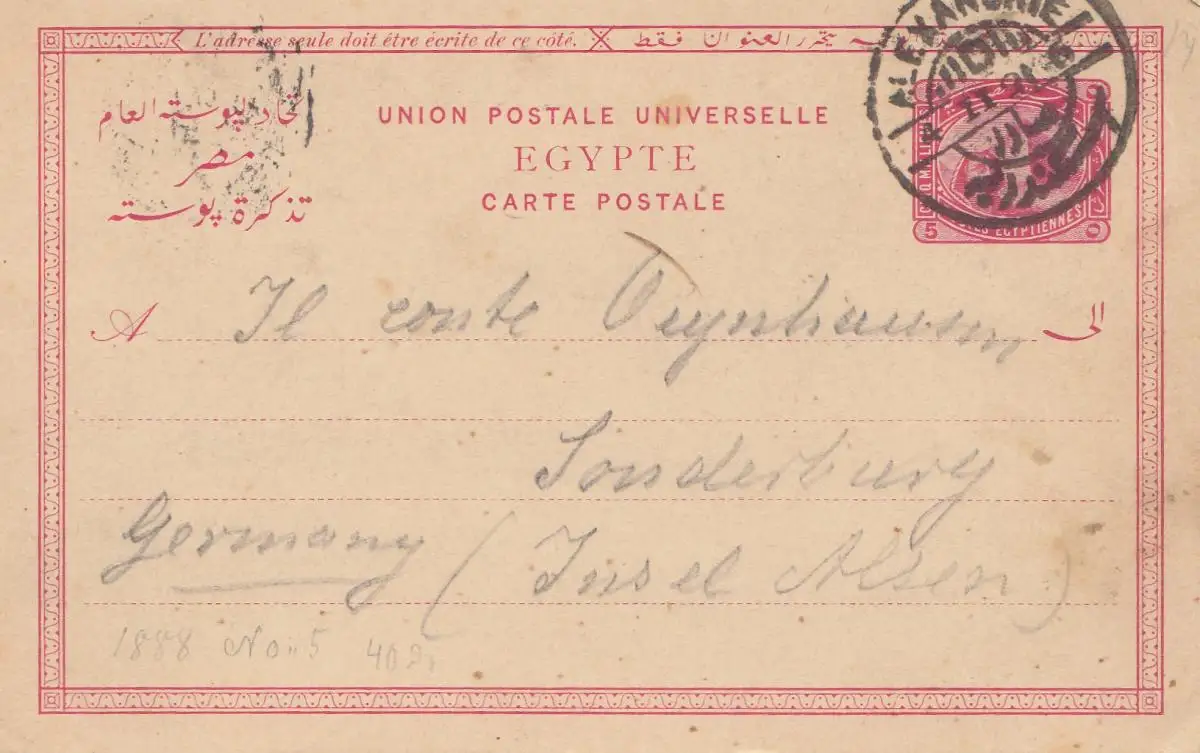 L'adresse seule doit être écrite de ce côté. يحرر العنوان فقط
اتحاد البوسته العام
مصر
تذكرة پوسته
UNION POSTALE UNIVERSELLE
EGYPTE
CARTE POSTALE
ALEXANDRIE
5
POSTES EGYPTIENNES
A Il conte Oeynhausen الى
Sonderburg
Germany (Insel Alsen)
1888 No. 5 40